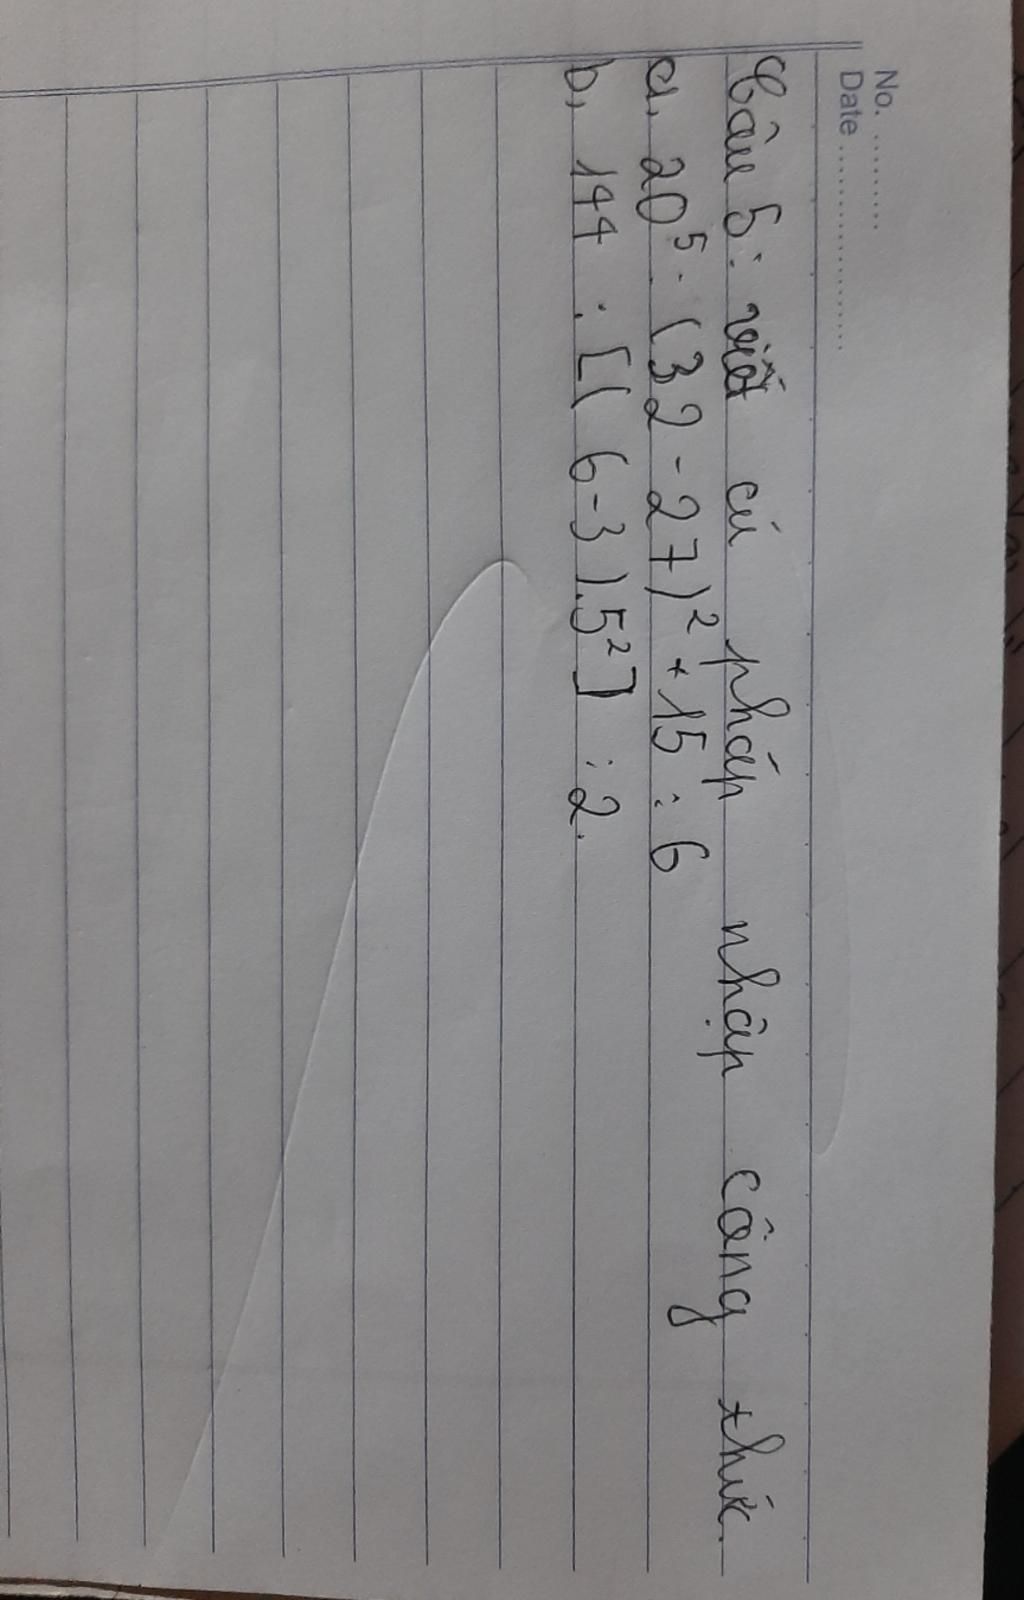 No. ..........
Date ....................
Câu 5: viết cú pháp nhập công thức.
a, 20⁵ . (32 - 27)² + 15 : 6
b, 144 : [( 6-3 ).5²] : 2.